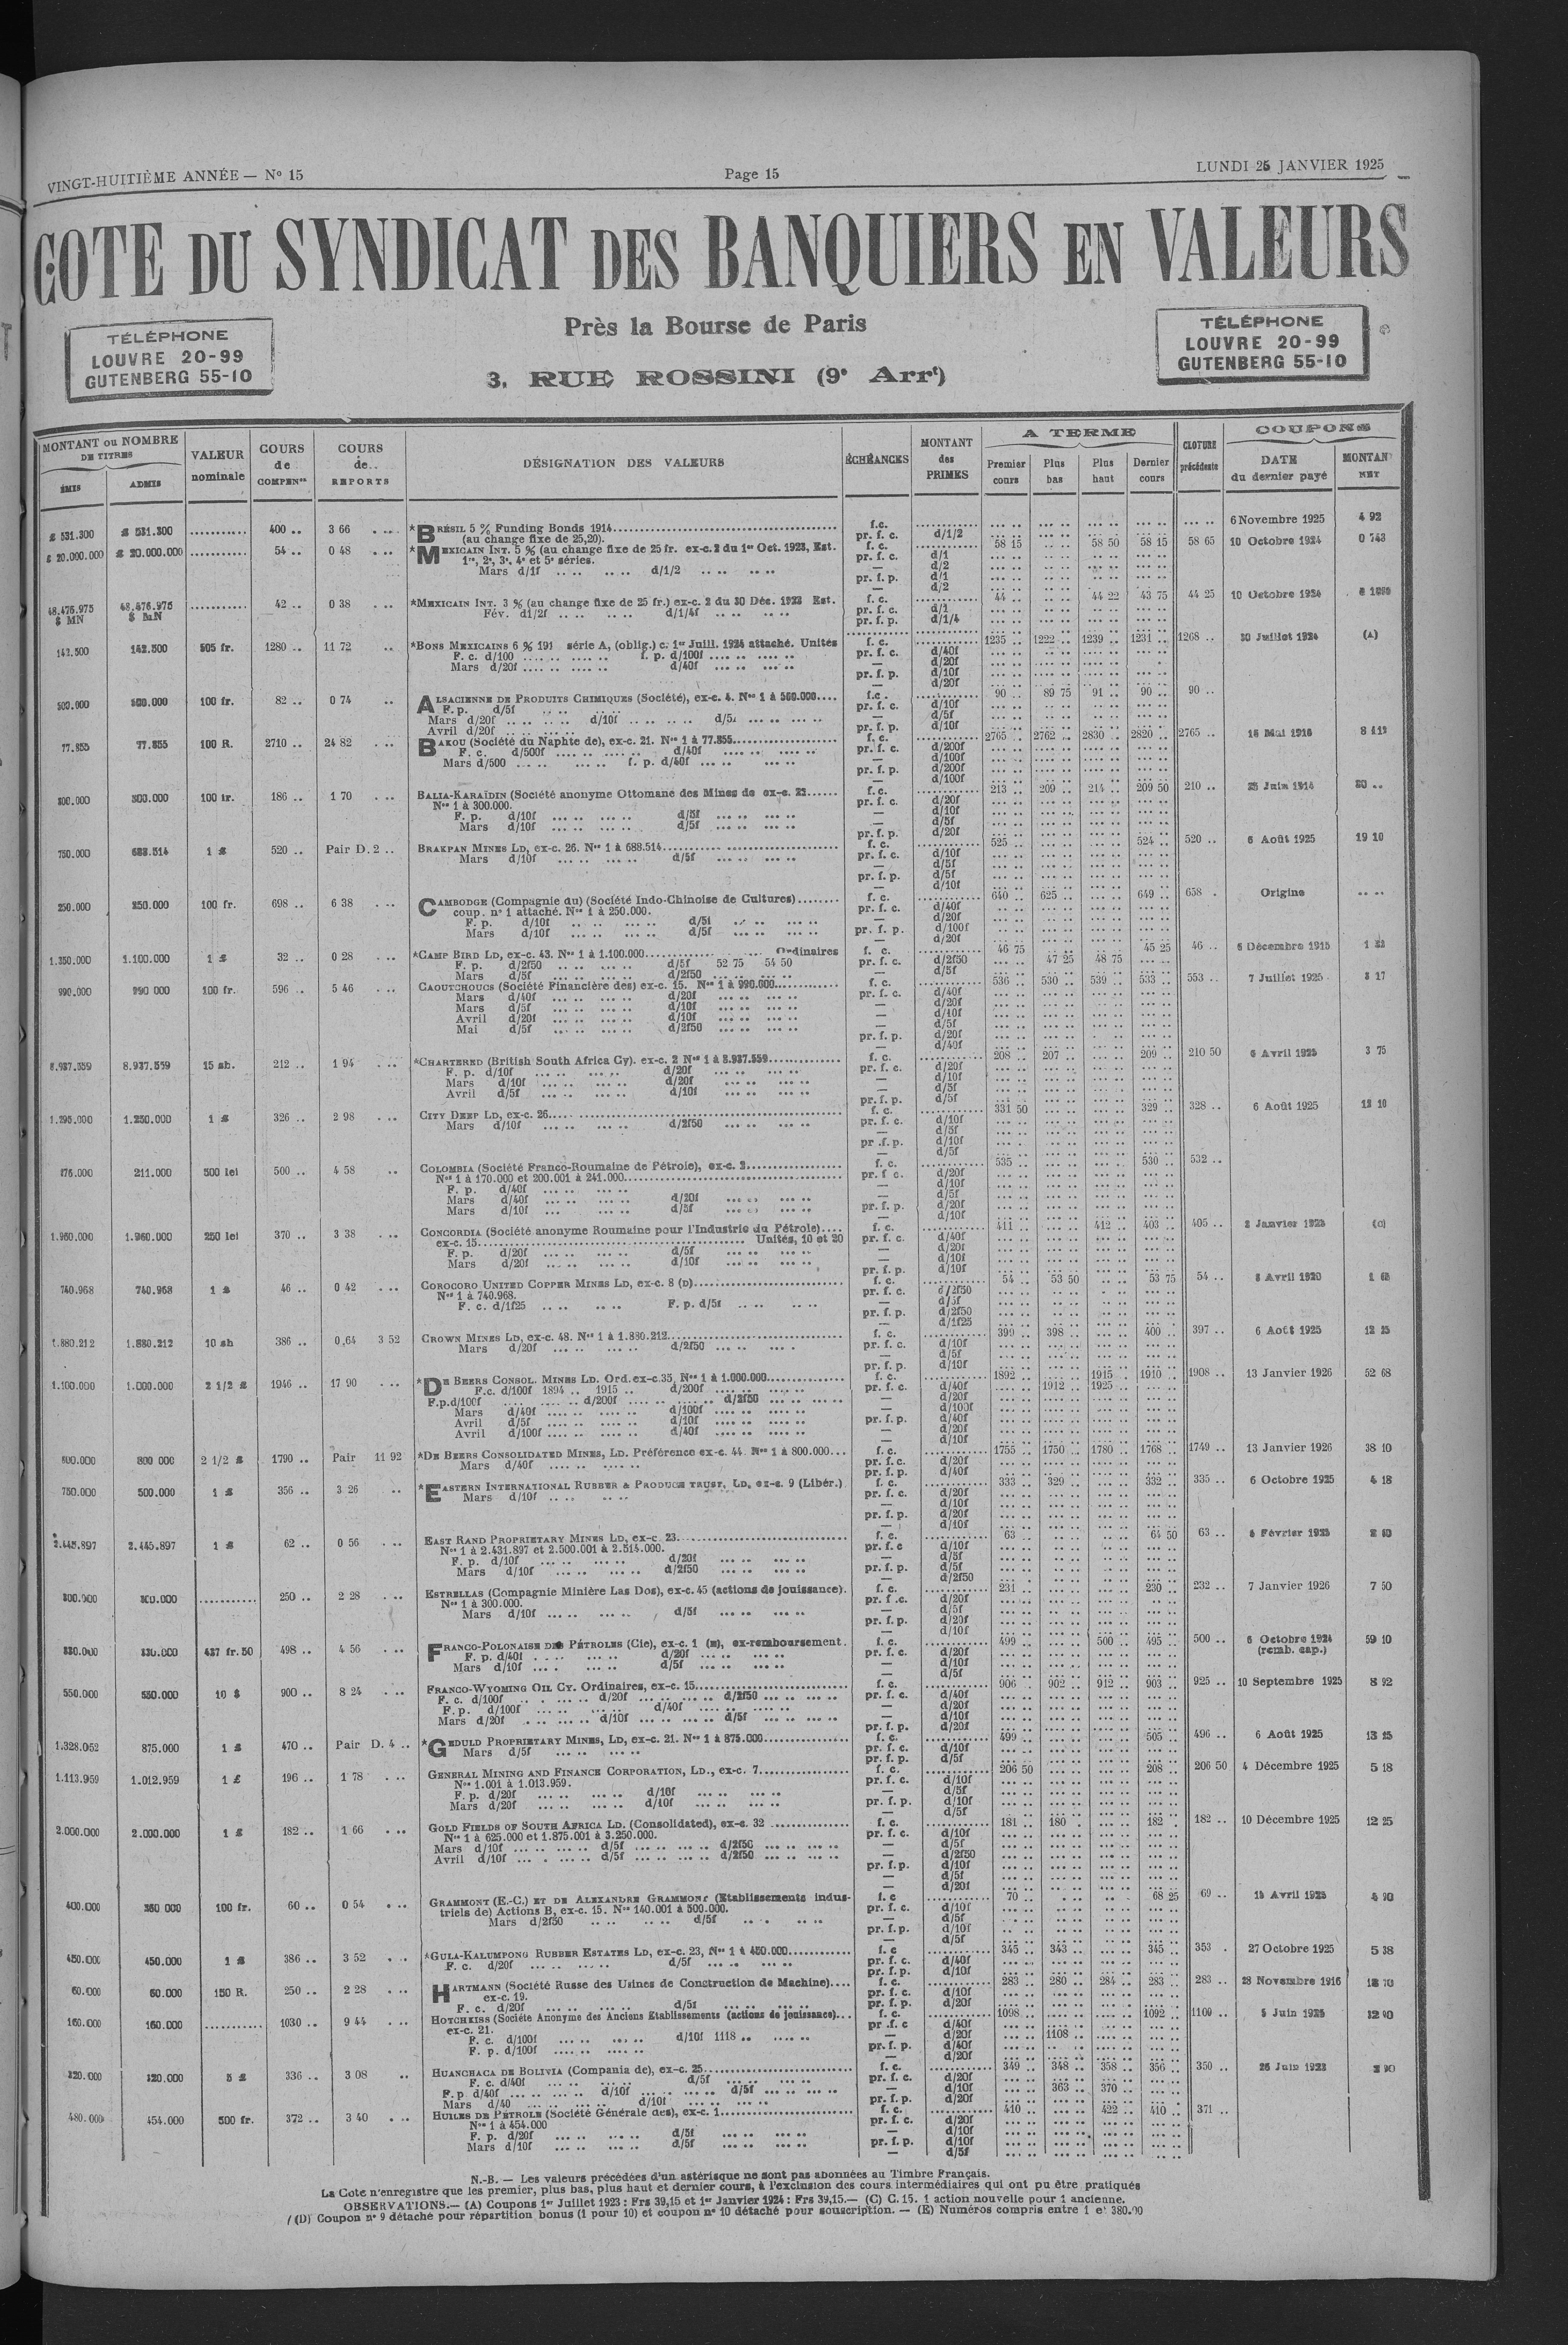 VINGT-HUITIÈME ANNÉE — N° 15
Page 15
LUNDI 25 JANVIER 1925
COTE DU SYNDICAT DES BANQUIERS EN VALEURS
TÉLÉPHONE
LOUVRE 20-99
GUTENBERG 55-10
Près la Bourse de Paris
3, RUE ROSSINI (9e Arrt)
TÉLÉPHONE
LOUVRE 20-99
GUTENBERG 55-10
MONTANT ou NOMBRE DE TITRES
ÉMIS ADMIS
VALEUR nominale
COURS de COMPENon
COURS de REPORTS
DÉSIGNATION DES VALEURS
ÉCHÉANCES
MONTANT des PRIMES
A TERME
Premier cours Plus bas Plus haut Dernier cours
CLOTURE précédente
COUPONS
DATE du dernier payé
MONTANT NET
£ 531.300 £ 531.300 400 .. 3 66 *BRÉSIL 5 % Funding Bonds 1914 f.c. 6 Novembre 1925 4 92
(au change fixe de 25,20). pr. f. c. d/1/2
£ 20.000.000 £ 20.000.000 54 .. 0 48 *MEXICAIN INT. 5 % (au change fixe de 25 fr. ex-c. 2 du 1er Oct. 1923, Est. f. c. 58 15 58 50 58 15 58 65 10 Octobre 1924 0 743
1re, 2e, 3e, 4e et 5e séries. pr. f. c. d/1
Mars d/1f d/1/2 — d/2
pr. f. p. d/1
— d/2
48.476.975 $ MN 48.476.976 $ MN 42 .. 0 38 *MEXICAIN INT. 3 % (au change fixe de 25 fr.) ex-c. 2 du 30 Déc. 1923 Est. f. c. 44 .. 44 22 43 75 44 25 10 Octobre 1924
Fév. d1/2f d/1/4f pr. f. c. d/1
pr. f. p. d/1/4
142.500 142.500 505 fr. 1280 .. 11 72 *BONS MEXICAINS 6 % 191 série A, (oblig.) c. 1er Juill. 1924 attaché. Unités f. c. 1235 .. 1222 .. 1239 .. 1231 .. 1268 .. 30 Juillet 1924 (A)
F. c. d/100 f. p. d/100f pr. f. c. d/40f
Mars d/20f d/40f — d/20f
pr. f. p. d/10f
— d/20f
500.000 500.000 100 fr. 82 .. 0 74 ALSACIENNE DE PRODUITS CHIMIQUES (Société), ex-c. 4. Nos 1 à 500.000 f.c. 90 .. 89 75 91 .. 90 .. 90 ..
F. p. d/5f pr. f. c. d/10f
Mars d/20f d/10f d/5f — d/5f
Avril d/20f pr. f. p. d/10f
77.855 77.855 100 R. 2710 .. 24 82 BAKOU (Société du Naphte de), ex-c. 21. Nos 1 à 77.855 f. c. 2765 .. 2762 .. 2830 .. 2820 .. 2765 .. 15 Mai 1916
F. c. d/500f d/40f pr. f. c. d/200f
Mars d/500 f. p. d/40f — d/100f
pr. f. p. d/200f
— d/100f
300.000 300.000 100 fr. 186 .. 1 70 BALIA-KARAÏDIN (Société anonyme Ottomane des Mines de ex-c. 22 f. c. 213 .. 209 .. 214 .. 209 50 210 .. 25 Juin 1914 20 ..
Nos 1 à 300.000. pr. f. c. d/20f
F. p. d/10f d/5f — d/10f
Mars d/10f d/5f — d/5f
pr. f. p. d/20f
750.000 688.514 1 £ 520 .. Pair D. 2 .. BRAKPAN MINES LD, ex-c. 26. Nos 1 à 688.514 f. c. 525 .. 524 .. 520 .. 6 Août 1925 19 10
Mars d/10f d/5f pr. f. c. d/10f
— d/5f
pr. f. p. d/5f
— d/10f
250.000 250.000 100 fr. 698 .. 6 38 CAMBODGE (Compagnie du) (Société Indo-Chinoise de Cultures) f. c. 640 .. 625 .. 649 .. 658 . Origine
coup. n° 1 attaché. Nos 1 à 250.000. pr. f. c. d/40f
F. p. d/10f d/5f — d/20f
Mars d/10f d/5f pr. f. p. d/100f
— d/20f
1.350.000 1.100.000 1 £ 32 .. 0 28 *CAMP BIRD LD, ex-c. 43. Nos 1 à 1.100.000 Ordinaires f. c. 46 75 45 25 46 .. 6 Décembre 1915
F. p. d/2f50 d/5f 52 75 54 50 pr. f. c. d/2f50 47 25 48 75
Mars d/5f d/2f50 — d/5f
990.000 990 000 100 fr. 596 .. 5 46 CAOUTCHOUCS (Société Financière des) ex-c. 15. Nos 1 à 990.000 f. c. 536 .. 530 .. 539 .. 533 .. 553 .. 7 Juillet 1925 8 17
Mars d/40f d/20f pr. f. c. d/40f
Mars d/5f d/10f — d/20f
Avril d/20f d/10f — d/10f
Mai d/5f d/2f50 — d/5f
pr. f. p. d/20f
— d/40f
8.937.559 8.937.559 15 sh. 212 .. 1 94 *CHARTERED (British South Africa Cy). ex-c. 2 Nos 1 à 8.937.559 f. c. 208 .. 207 .. 209 .. 210 50 6 Avril 1925 3 75
F. p. d/10f d/20f pr. f. c. d/20f
Mars d/10f d/20f — d/10f
Avril d/5f d/10f — d/5f
pr. f. p. d/5f
1.295.000 1.250.000 1 £ 326 .. 2 98 CITY DEEP LD, ex-c. 26 f. c. 331 50 329 .. 328 .. 6 Août 1925 12 10
Mars d/10f d/2f50 pr. f. c. d/10f
— d/5f
pr .f. p. d/10f
— d/5f
276.000 211.000 500 lei 500 .. 4 58 COLOMBIA (Société Franco-Roumaine de Pétrole), ex-c. 2 f. c. 535 .. 530 .. 532 ..
Nos 1 à 170.000 et 200.001 à 241.000 pr. f c. d/20f
F. p. d/40f — d/10f
Mars d/40f d/20f — d/5f
Mars d/10f d/5f pr. f. p. d/20f
— d/10f
1.960.000 1.960.000 250 lei 370 .. 3 38 CONCORDIA (Société anonyme Roumaine pour l'Industrie du Pétrole) f. c. 411 .. 412 .. 403 .. 405 .. 2 Janvier 1923 (C)
ex-c. 15 Unités, 10 et 20 pr. f. c. d/40f
F. p. d/20f d/5f — d/20f
Mars d/20f d/10f — d/10f
pr. f. p. d/10f
740.968 740.968 1 £ 46 .. 0 42 COROCORO UNITED COPPER MINES LD, ex-c. 8 (D) f. c. 54 .. 53 50 53 75 54 .. 8 Avril 1920
Nos 1 à 740.968. pr. f. c. d/2f50
F. c. d/1f25 F. p. d/5f — d/5f
pr. f. p. d/2f50
— d/1f25
1.880.212 1.880.212 10 sh 386 .. 0,64 3 52 CROWN MINES LD, ex-c. 48. Nos 1 à 1.880.212 f. c. 399 .. 398 .. 400 .. 397 .. 6 Août 1925 12 25
Mars d/20f d/2f50 pr. f. c. d/10f
— d/5f
pr. f. p. d/10f
1.100.000 1.000.000 2 1/2 £ 1946 .. 17 90 *DE BEERS CONSOL. MINES LD. Ord. ex-c. 35, Nos 1 à 1.000.000 f. c. 1892 .. 1915 .. 1910 .. 1908 .. 13 Janvier 1926 52 68
F.c. d/100f 1894 .. 1915 .. d/200f pr. f. c. d/40f 1912 .. 1925 ..
F.p.d/100f d/200f d/2f50 — d/20f
Mars d/40f d/100f — d/100f
Avril d/5f d/10f pr. f. p. d/40f
Avril d/100f d/40f — d/20f
— d/10f
800.000 800 000 2 1/2 £ 1790 .. Pair 11 92 *DE BEERS CONSOLIDATED MINES, LD. Préférence ex-c. 44. Nos 1 à 800.000 f. c. 1755 .. 1750 .. 1780 .. 1768 .. 1749 .. 13 Janvier 1926 38 10
Mars d/40f pr. f. c. d/20f
pr. f. p. d/40f
750.000 500.000 1 £ 356 .. 3 26 *EASTERN INTERNATIONAL RUBBER & PRODUCE TRUST, LD, ex-c. 9 (Libér.) f. c. 333 .. 329 .. 332 .. 335 .. 6 Octobre 1925 4 18
Mars d/10f pr. f. c. d/20f
— d/10f
pr. f. p. d/20f
— d/10f
2.445.897 2.445.897 1 £ 62 .. 0 56 EAST RAND PROPRIETARY MINES LD, ex-c. 23 f. c. 63 .. 64 50 63 .. Février
Nos 1 à 2.431.897 et 2.500.001 à 2.514.000. pr. f. c d/10f
F. p. d/10f d/20f — d/5f
Mars d/10f d/2f50 pr. f. p. d/5f
— d/2f50
300.000 300.000 250 .. 2 28 ESTRELLAS (Compagnie Minière Las Dos), ex-c. 45 (actions de jouissance). f. c. 231 .. 230 .. 232 .. 7 Janvier 1926 7 50
Nos 1 à 300.000. pr. f .c. d/20f
Mars d/10f d/5f — d/5f
pr. f. p. d/20f
— d/10f
380.000 437 fr. 50 498 .. 4 56 FRANCO-POLONAISE DES PÉTROLES (Cie), ex-c. 1 (E), ex-remboursement. f. c. 499 .. 500 .. 495 .. 500 .. 6 Octobre 1924 59 10
F. p. d/40f d/20f pr. f. c. d/20f (remb. cap.)
Mars d/10f d/5f — d/10f
— d/5f
550.000 550.000 10 $ 900 .. 8 24 FRANCO-WYOMING OIL CY. Ordinaires, ex-c. 15 f. c. 906 .. 902 .. 912 .. 903 .. 925 .. 10 Septembre 1925 8 92
F. c. d/100f d/20f d/2f50 pr. f. c. d/40f
F. p. d/100f d/40f — d/20f
Mars d/20f d/10f d/5f — d/10f
pr. f. p. d/20f
1.328.052 875.000 1 £ 470 .. Pair D. 4 .. *GEDULD PROPRIETARY MINES, LD, ex-c. 21. Nos 1 à 875.000 f. c. 499 .. 505 .. 496 .. 6 Août 1925 13 25
Mars d/5f pr. f. c. d/10f
pr. f. p. d/5f
1.113.959 1.012.959 1 £ 196 .. 1 78 GENERAL MINING AND FINANCE CORPORATION, LD., ex-c. 7 f. c. 206 50 208 .. 206 50 4 Décembre 1925 5 18
Nos 1.001 à 1.013.959. pr. f. c. d/10f
F. p. d/20f d/10f — d/5f
Mars d/20f d/10f pr. f. p. d/10f
— d/5f
2.000.000 2.000.000 1 £ 182 .. 1 66 GOLD FIELDS OF SOUTH AFRICA LD. (Consolidated), ex-c. 32 f. c. 181 .. 180 . 182 . 182 .. 10 Décembre 1925 12 25
Nos 1 à 625.000 et 1.875.001 à 3.250.000. pr. f. c. d/10f
Mars d/10f d/5f d/2f50 — d/5f
Avril d/10f d/5f d/2f50 — d/2f50
pr. f.p. d/10f
— d/5f
— d/20f
400.000 360 000 100 fr. 60 .. 0 54 GRAMMONT (E.-C.) ET DE ALEXANDRE GRAMMONT (Etablissements indus- f. c 70 .. 68 25 69 .. 15 Avril 1925 4 90
triels de) Actions B, ex-c. 15. Nos 140.001 à 500.000. pr. f. c. d/10f
Mars d/2f50 d/5f — d/5f
pr. f.p. d/10f
— d/5f
450.000 450.000 1 £ 386 .. 3 52 *GULA-KALUMPONG RUBBER ESTATES LD, ex-c. 23, Nos 1 à 450.000 f. c 345 .. 343 .. 345 .. 353 . 27 Octobre 1925 5 38
F. c. d/20f d/5f pr. f. c. d/40f
pr. f. p. d/10f
60.000 60.000 150 R. 250 .. 2 28 HARTMANN (Société Russe des Usines de Construction de Machine) f. c. 283 .. 280 .. 284 .. 283 .. 283 .. 28 Novembre 1916
ex-c. 19. pr. f. c. d/10f
F. c. d/20f d/5f pr. f. p. d/20f
160.000 160.000 1030 .. 9 44 HOTCHKISS (Société Anonyme des Anciens Etablissements (actions de jouissance) f. c. 1098 .. 1092 .. 1100 .. 5 Juin 1925 32 90
ex-c. 21. pr .f. c d/40f
F. c. d/100f d/10f 1118 .. — d/20f 1108 ..
F. p. d/100f pr. f. p. d/40f
— d/20f
320.000 320.000 5 £ 336 .. 3 08 HUANCHACA DE BOLIVIA (Compania de), ex-c. 25 f. c. 349 .. 348 .. 358 .. 356 .. 350 .. 26 Juin 1923
F. c. d/40f d/5f pr. f. c. d/20f
F. p d/40f d/10f d/5f — d/10f 363 .. 370 ..
Mars d/40 d/10f pr. f. p. d/20f
480.000 454.000 500 fr. 372 .. 3 40 HUILES DE PÉTROLE (Société Générale des), ex-c. 1 f. c. 410 .. 422 .. 410 .. 371 ..
Nos 1 à 454.000 pr. f. c. d/20f
F. p. d/20f d/5f — d/10f
Mars d/10f d/5f pr. f. p. d/10f
— d/5f
N.-B. — Les valeurs précédées d'un astérisque ne sont pas abonnées au Timbre Français.
La Cote n'enregistre que les premier, plus bas, plus haut et dernier cours, à l'exclusion des cours intermédiaires qui ont pu être pratiqués
OBSERVATIONS.— (A) Coupons 1er Juillet 1923 : Frs 39,15 et 1er Janvier 1924 : Frs 39,15.— (C) C. 15. 1 action nouvelle pour 1 ancienne.
(D) Coupon n° 9 détaché pour répartition bonus (1 pour 10) et coupon n° 10 détaché pour souscription. — (E) Numéros compris entre 1 et 380.00